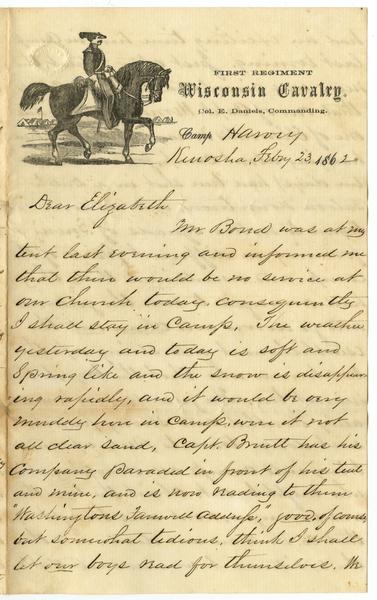 FIRST REGIMENT
Wisconsin Cavalry.
Col. E. Daniels, Commanding.
Camp Harvey
Kenosha, Feby 23, 1862
Dear Elizabeth
Mr Bond was at my
tent last evening and informed me
that there would be no service at
our Church today, consequently
I shall stay in Camp. The weather
yesterday and today is soft and
Spring like and the snow is disappear
ing rapidly, and it would be very
muddy here in camp, were it not
all clear sand, Capt. has his
Company paraded in front of his tent
and mine, and is now reading to them
"Washingtons Farewell Address", good, of course,
but somewhat tedious, think I shall
let our boys read for themselves. We